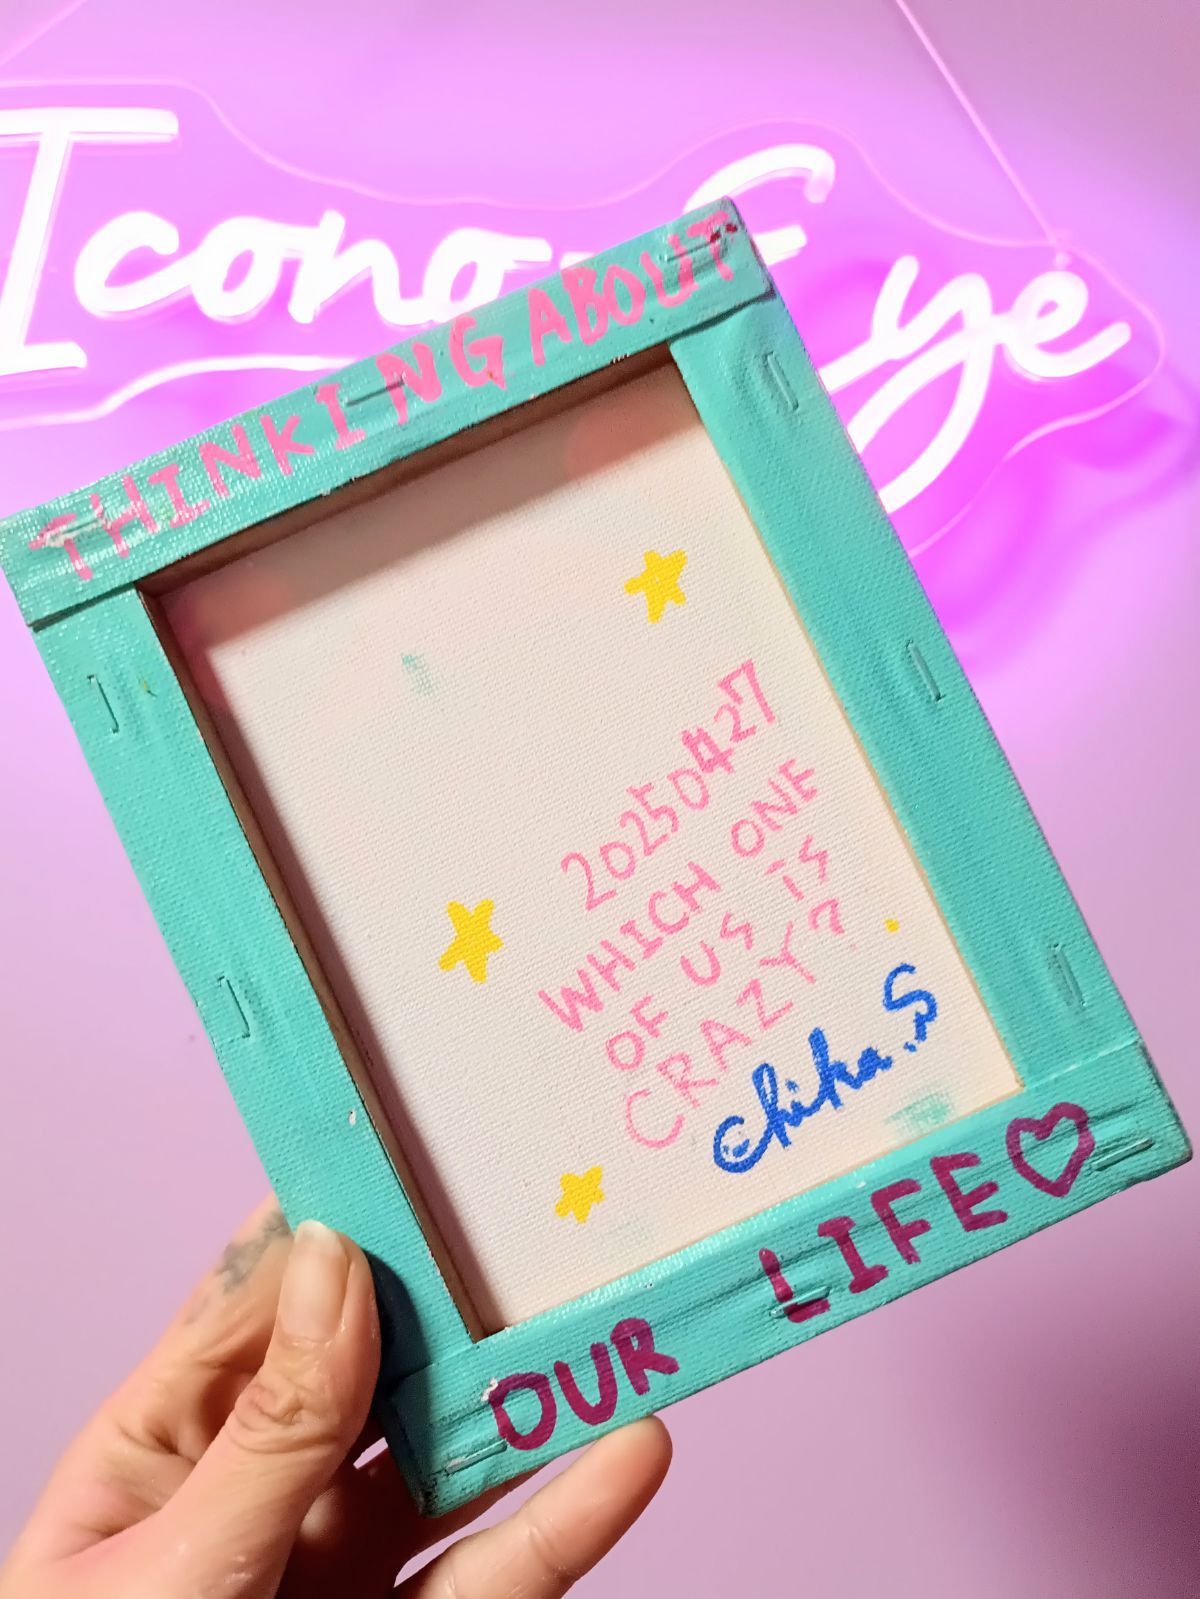 Icono-Eye
THINKING ABOUT
20250427
WHICH ONE
OF US IS
CRAZY?
Chika.S
OUR LIFE♡